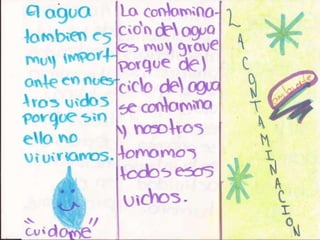 El agua
tambien es
muy import-
ante en nues-
tras vidas
porque sin
ella no
viviriamos.
"cuidame"
La contamina-
ción del agua
es muy grave
porque del
ciclo del agua
se contamina
y nosotros
tomamos
todos esos
vichos.
LA CONTAMINACION
ambiente